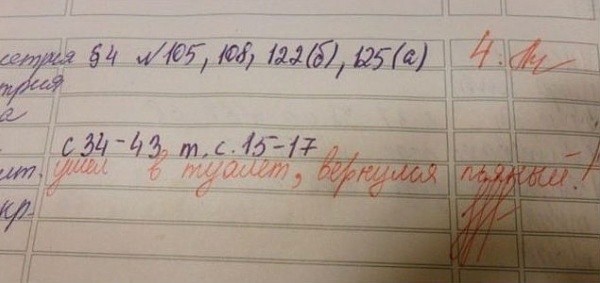 метрия §4 №105, 108, 122(б), 125(а) 4.
трия
а
с 34-43, т. с. 15-17
ушел в туалет, вернулся пьяный!